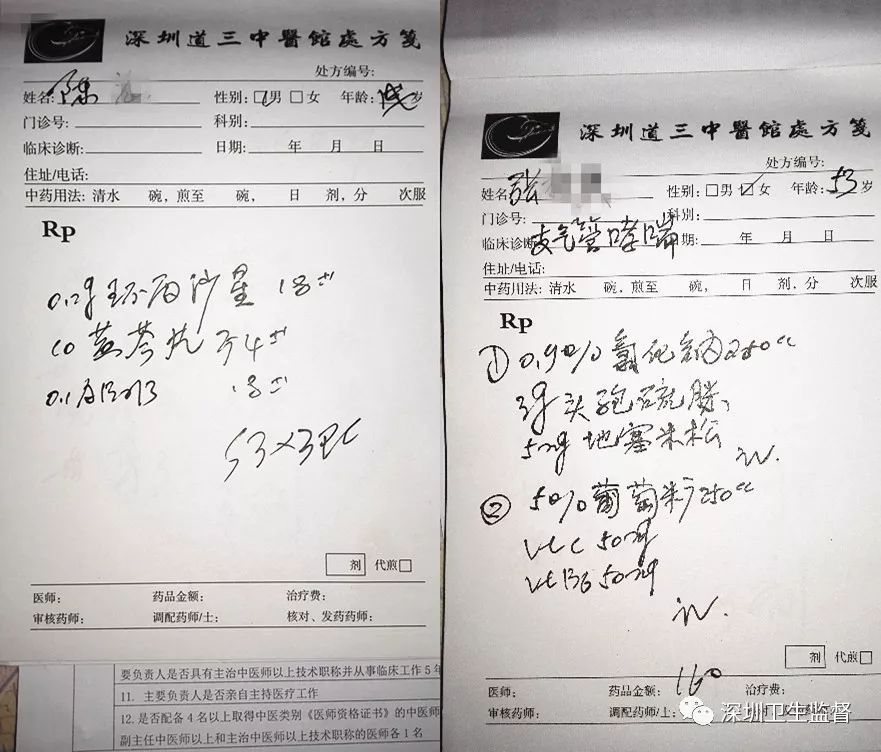 深圳道三中醫館處方箋
处方编号:
姓名: 陈 性别: 男 女 年龄: 岁
门诊号: 科别:
临床诊断: 日期: 年 月 日
住址/电话:
中药用法: 清水 碗, 煎至 碗, 日 剂, 分 次服
Rp
环丙沙星 18
黄芩片
0.1 18
剂 代煎
医师: 药品金额: 治疗费:
审核药师: 调配药师/士: 核对、发药药师:
要负责人是否具有主治中医师以上技术职称并从事临床工作5年
11. 主要负责人是否亲自主持医疗工作
12. 是否配备4名以上取得中医类别《医师资格证书》的中医师
副主任中医师以上和主治中医师以上技术职称的医师各1名
深圳道三中醫館處方箋
处方编号:
姓名 张 性别: 男 女 年龄: 53 岁
门诊号: 科别:
临床诊断 支气管哮喘 期: 年 月 日
住址/电话:
中药用法: 清水 碗, 煎至 碗, 日 剂, 分 次服
Rp
① 0.9% 氯化钠 250cc
3g 头孢硫脒
5mg 地塞米松
iv.
② 50% 葡萄糖 250cc
Vt C 50mg
Vt B6 50mg
iv.
剂 代煎
医师: 药品金额: 160 治疗费:
审核药师: 调配药师/士:
深圳卫生监督